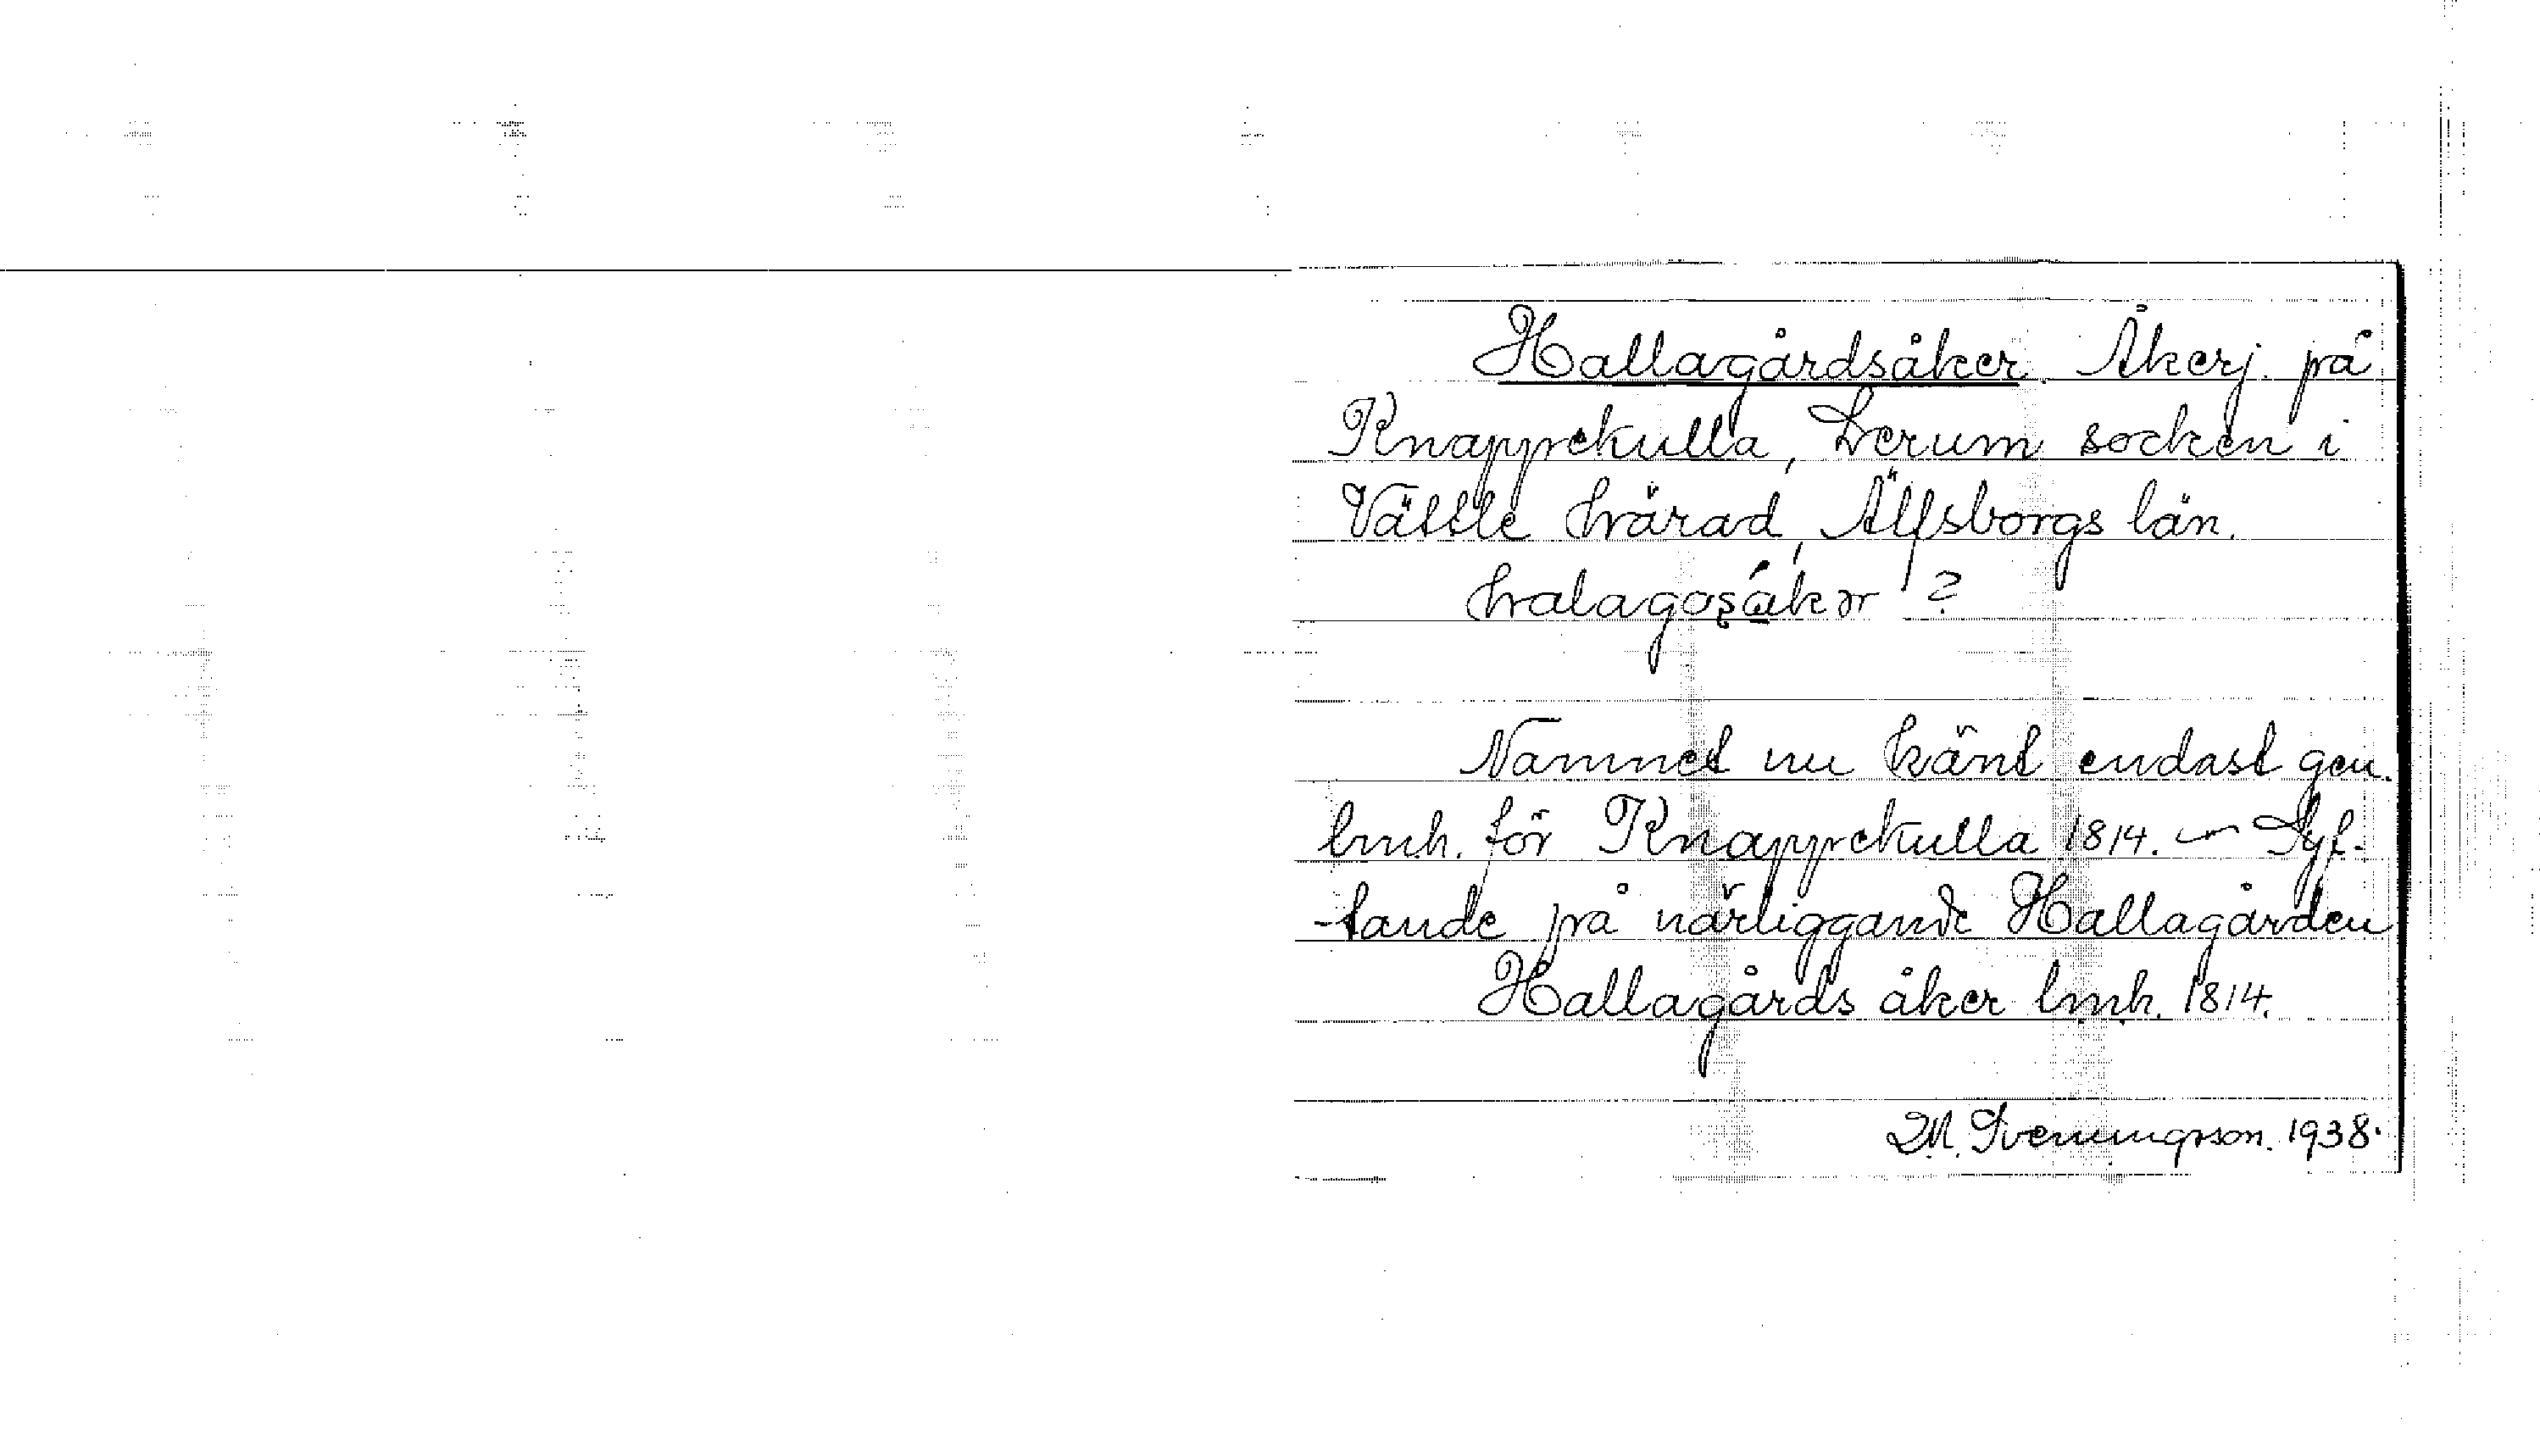 Hallagårdsåker. Åkerj. på
Knappekulla, Lerum socken i
Vättle härad, Älfsborgs län.
halagoșåkər ?
Namnet nu känt endast gen.
lmh. för Knappekulla 1814. ~ Syf-
-tande på närliggande Hallagården
Hallagårds åker lmh. 1814.
M. Svenungsson. 1938.